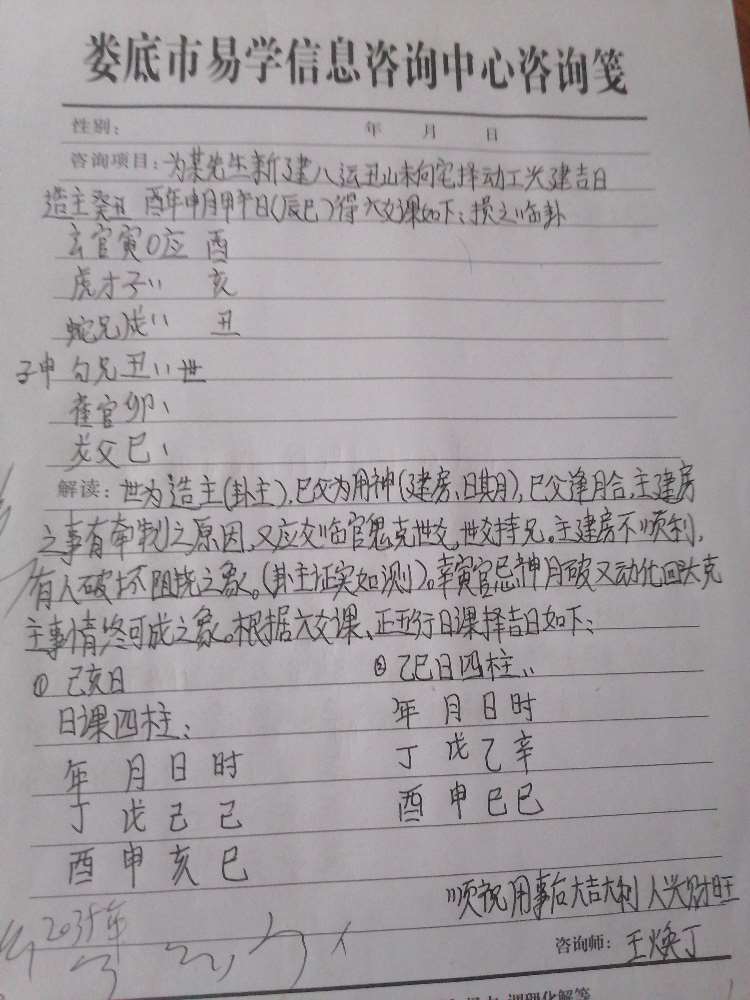 娄底市易学信息咨询中心咨询笺
性别: 年 月 日
咨询项目: 为某先生新建八运丑山未向宅择动工兴建吉日
造主癸丑 酉年申月甲午日(辰巳)得六爻课如下:损之临卦
玄官寅〇应 酉
虎才子、、 亥
蛇兄戌、、 丑
子申 勾兄丑、、世
雀官卯、
龙父巳、
解读: 世为造主(卦主),巳父为用神(建房、日期月),巳父逢月合,主建房
之事有牵制之原因,又应爻临官鬼克世爻,世爻持兄。主建房不顺利,
有人破坏阻挠之象。(卦主证实如测)。幸寅官忌神月破又动化回头克
主事情终可成之象。根据六爻课、正五行日课择吉日如下:
① 己亥日
② 乙巳日四柱、、
日课四柱:
年 月 日 时
年 月 日 时
丁 戊 乙 辛
丁 戊 己 己
酉 申 巳 巳
酉 申 亥 巳
顺祝 用事后大吉大利 人兴财旺
2035年
咨询师: 王焕丁